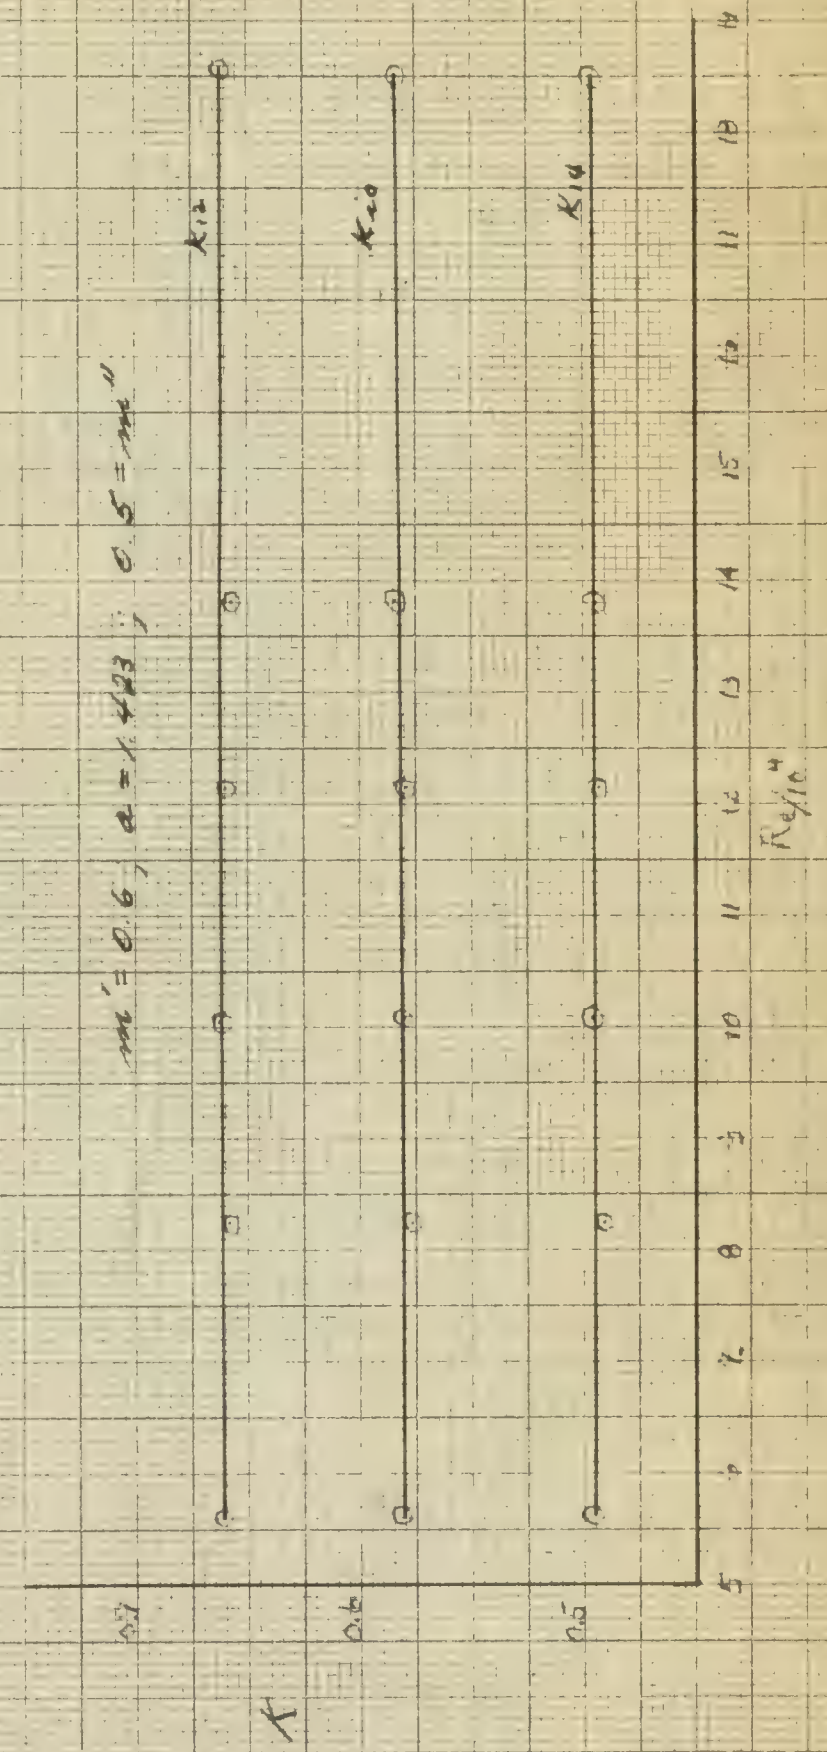 m' = 0.6, a = 1.423; 0.5 = m"
K12
K10
K14
K
0.7
0.6
0.5
5 6 7 8 9 10 11 12 13 14 15
Re/10^4